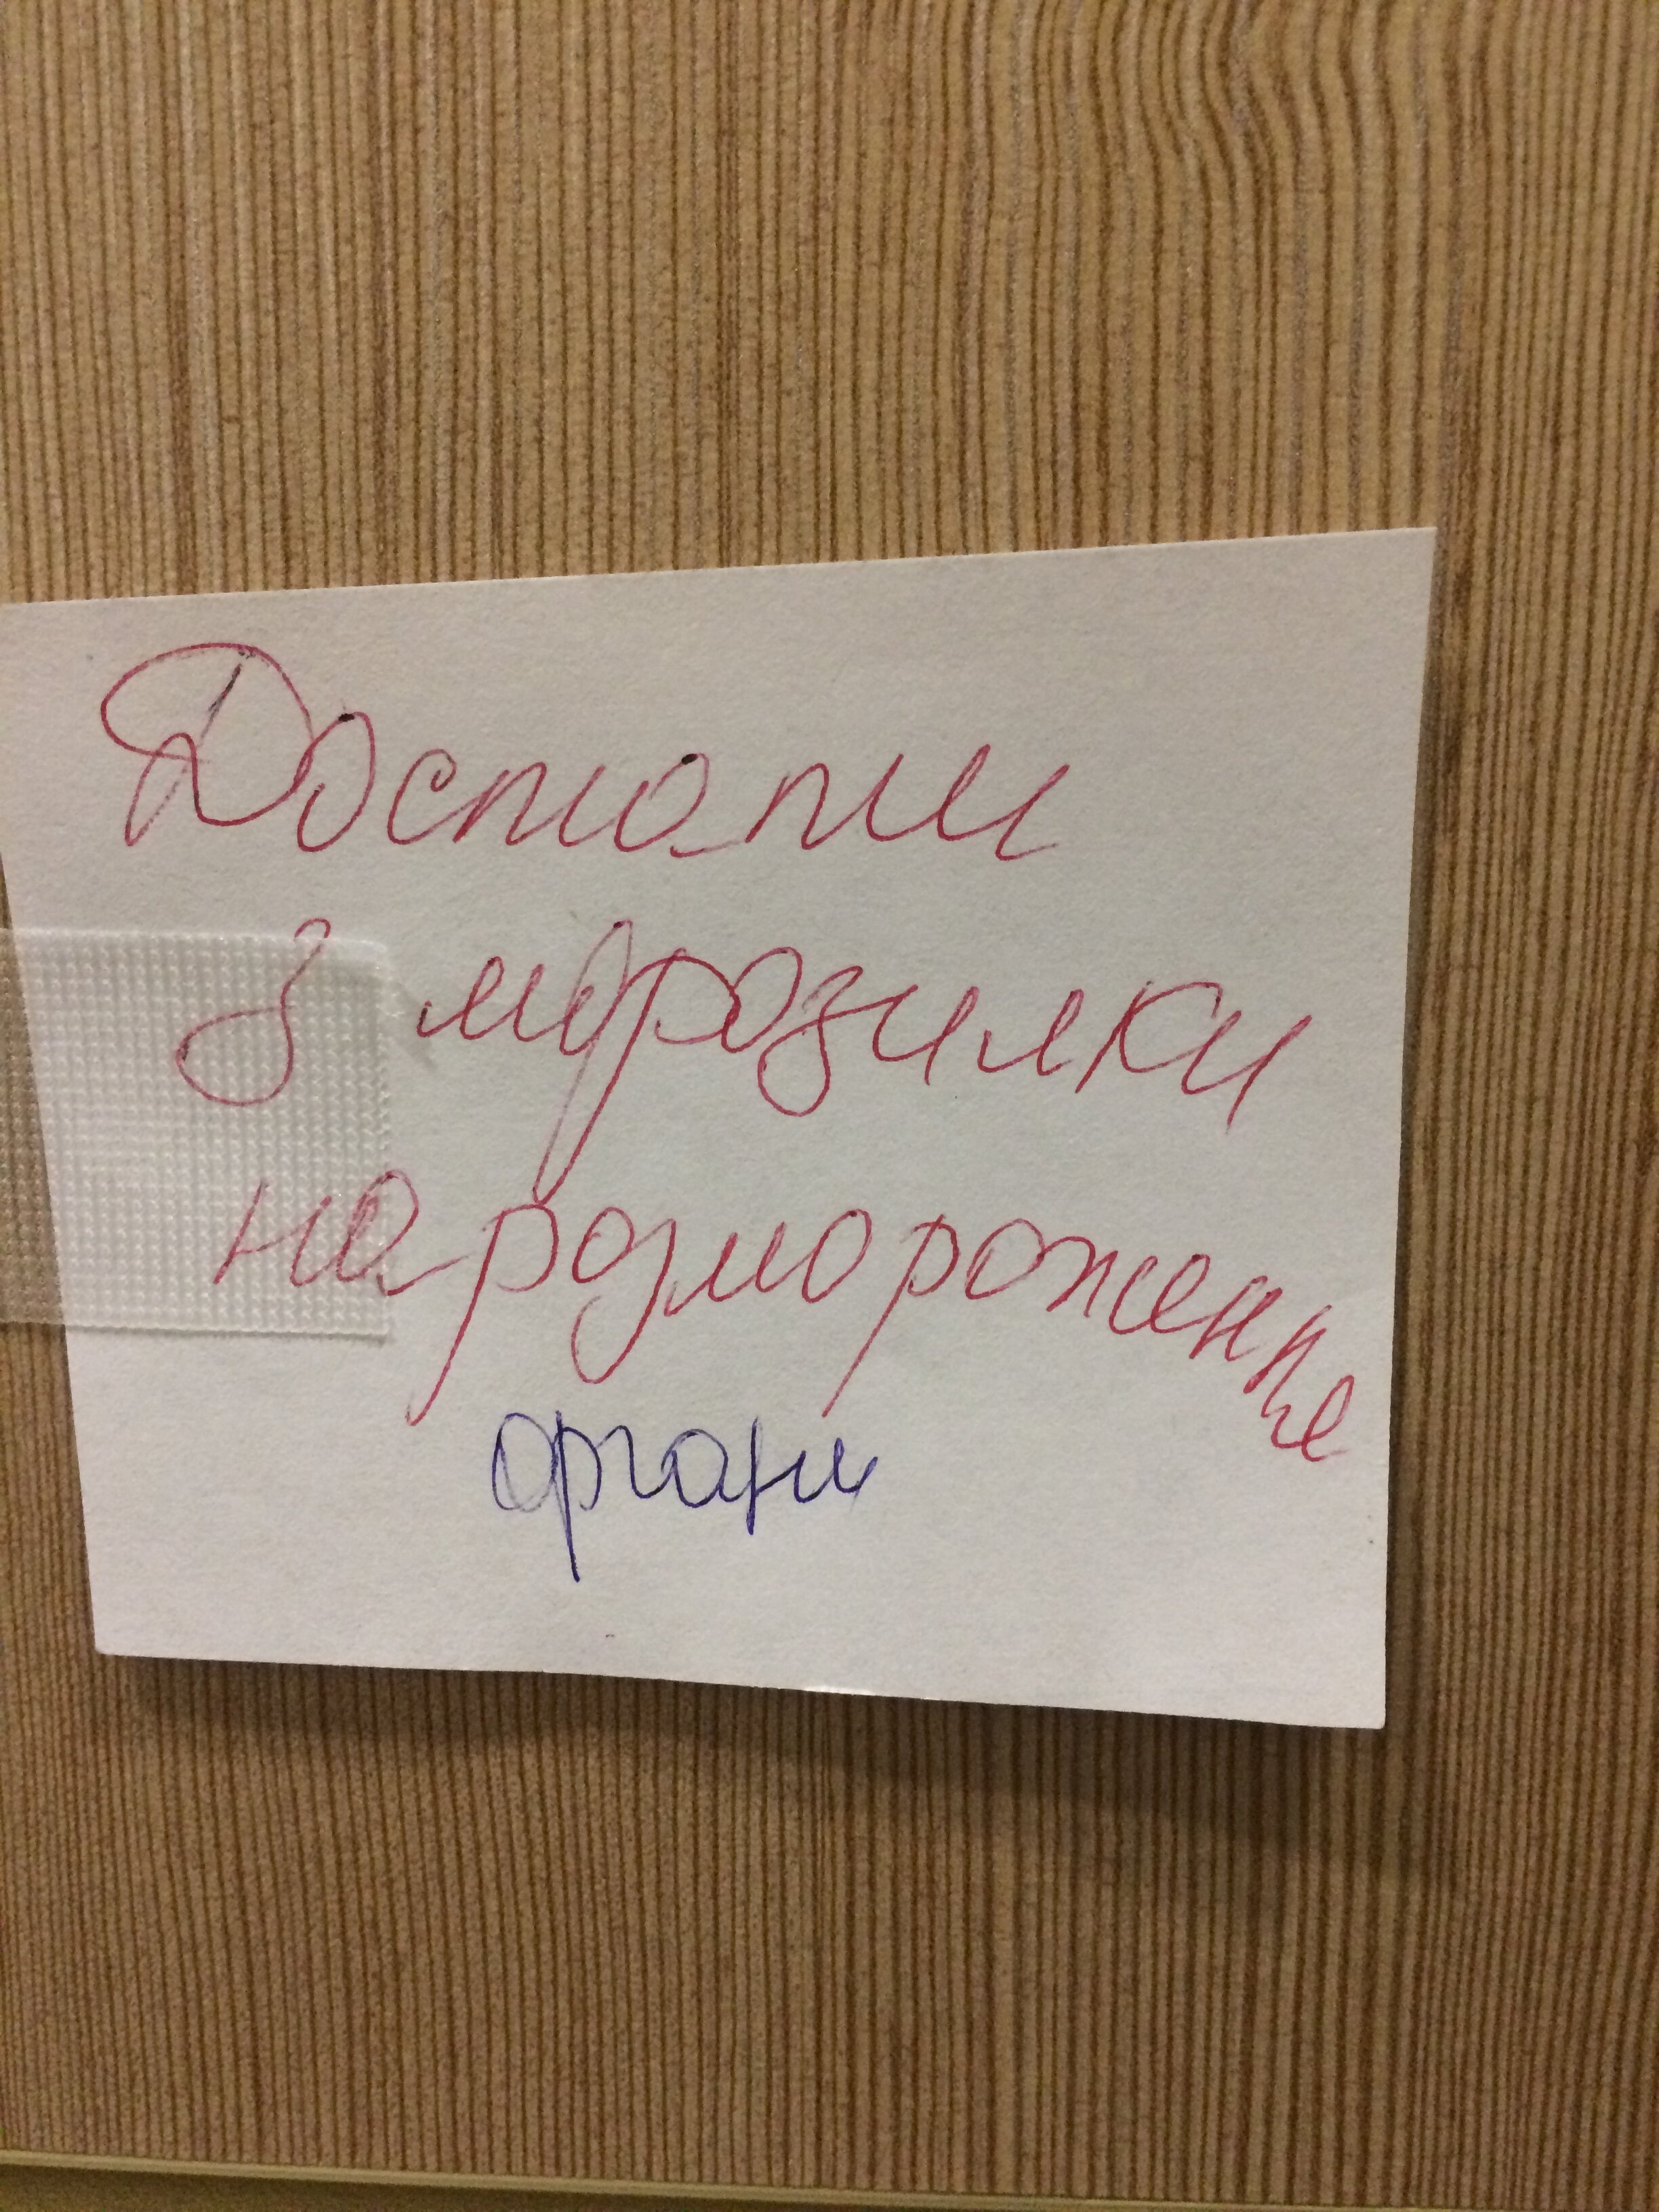 Достати
з морозилки
на розмороження
органи